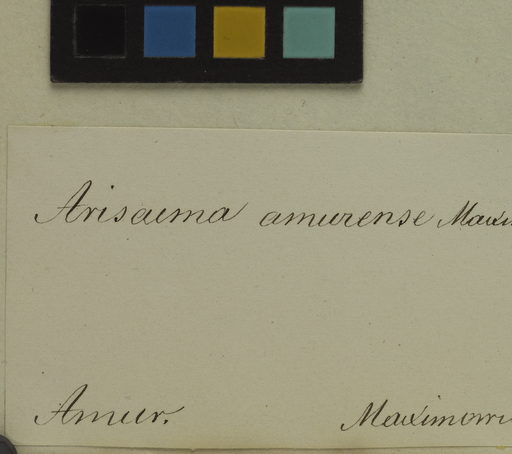 Arisaema amurense Maxim
Amur. Maximowi